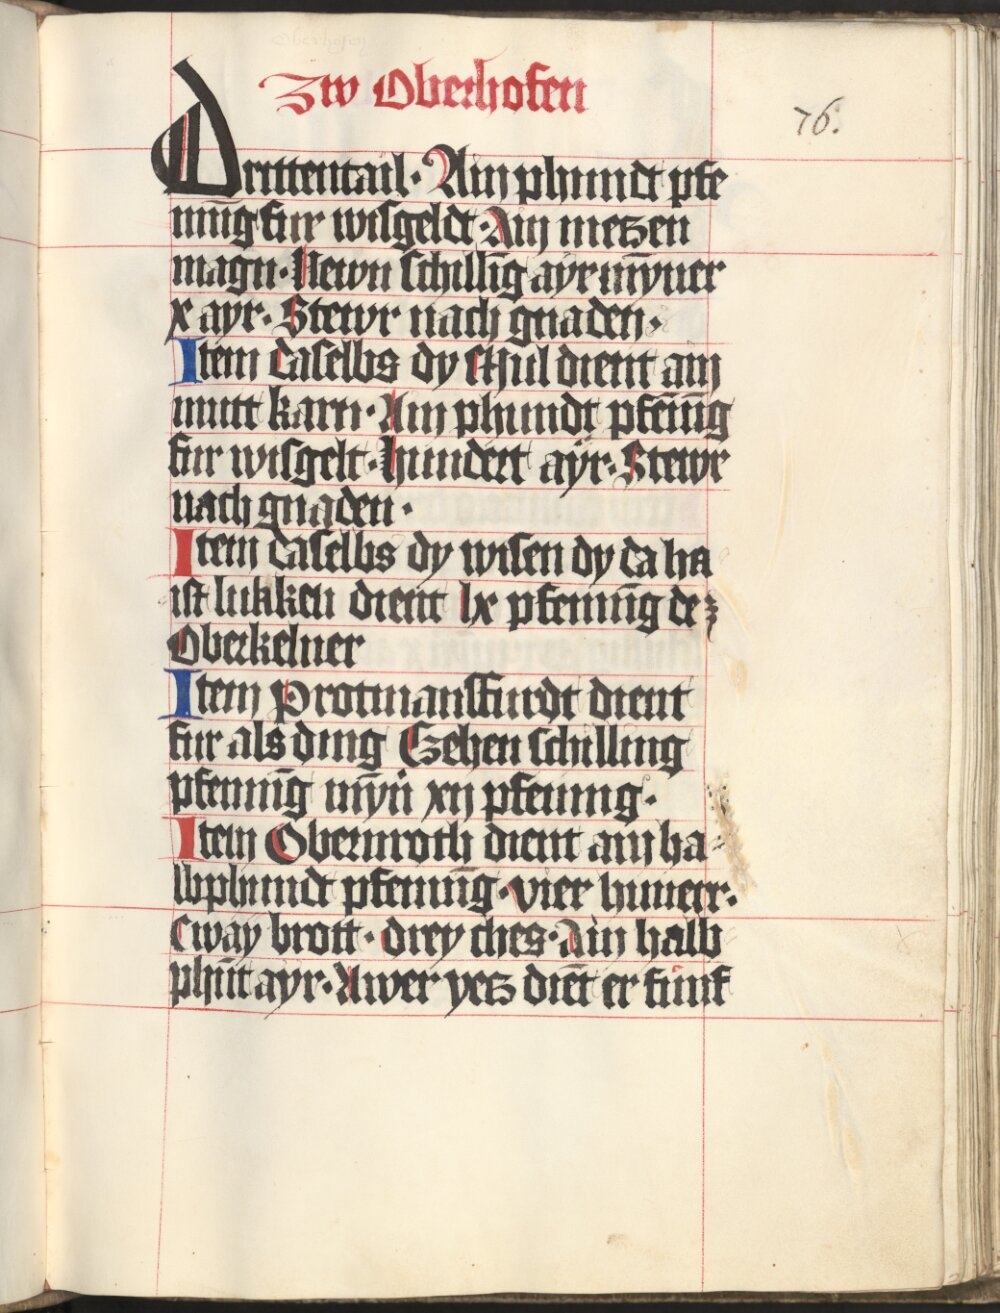 Zw Oberhofen
76.
Drittentail· Ain phundt pfe
nnīg fur wisgeldt· Ain metzen
magn· Newn schillīg ayr mȳner
x ayr· Stewr nach gnaden·
Item daselbs dy schul dient ain
mutt karn· Ain phundt pfēnīg
fur wisgelt· hundert aÿr· Stewr
nach gnaden·
Item daselbs dy wisen dy da ha
ist lukken dient lx pfennīg dez
Oberkelner
Item Protmansfurdt dient
fur als ding Czehen schilling
pfennīg mȳn xij pfennig·
Item Obernroth dient ain ha-
lbphundt pfennīg· vier huner·
Cway brott· drey ches· Ain halb
phūt ayr· Awer yetz diēt er funf